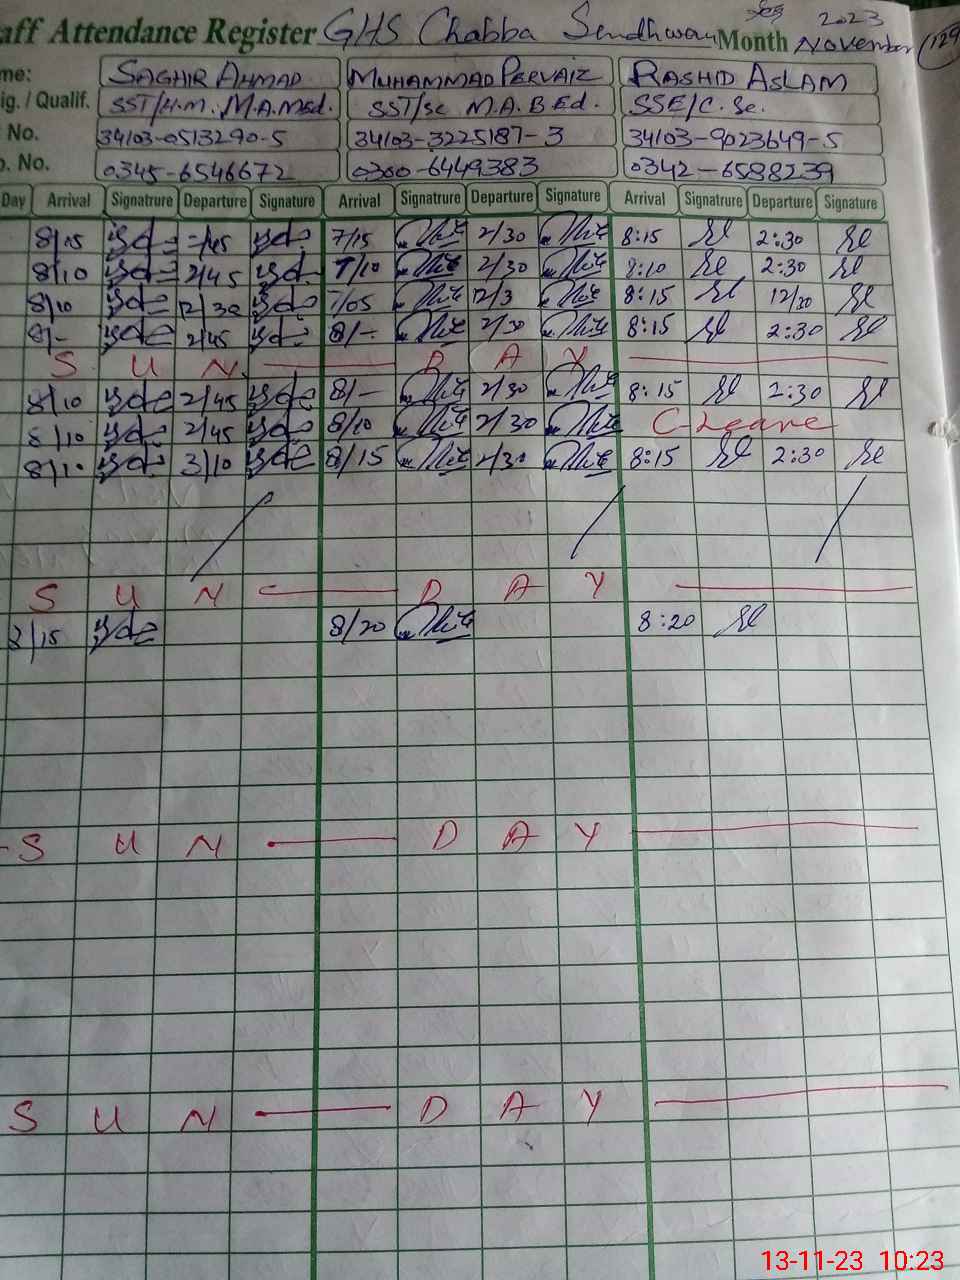 aff Attendance Register GHS Chabba Sendhwan Month November 2023 129
me: SAGHIR AHMAD MUHAMMAD PERVAIZ RASHID ASLAM
ig. / Qualif. SST/H.M. M.A.M.Ed. SST/Sc M.A. B.Ed. SSE/C.Sc.
No. 34103-0513290-5 34103-3225187-3 34103-9023649-5
o. No. 0345-6546672 0300-6449383 0342-6588239
Day Arrival Signatrure Departure Signature Arrival Signatrure Departure Signature Arrival Signatrure Departure Signature
8/15 2/45 7/15 2/30 8:15 2:30
8/10 2/45 7/10 2/30 8:10 2:30
8/10 12/30 7/05 12/3 8:15 12/30
8/- 2/45 8/- 2/30 8:15 2:30
S U N D A Y
8/10 2/45 8/- 2/30 8:15 2:30
8/10 2/45 8/10 2/30 C-Leave
8/10 3/10 8/15 2/30 8:15 2:30
S U N D A Y
8/15 8/20 8:20
S U N D A Y
S U N D A Y
13-11-23 10:23